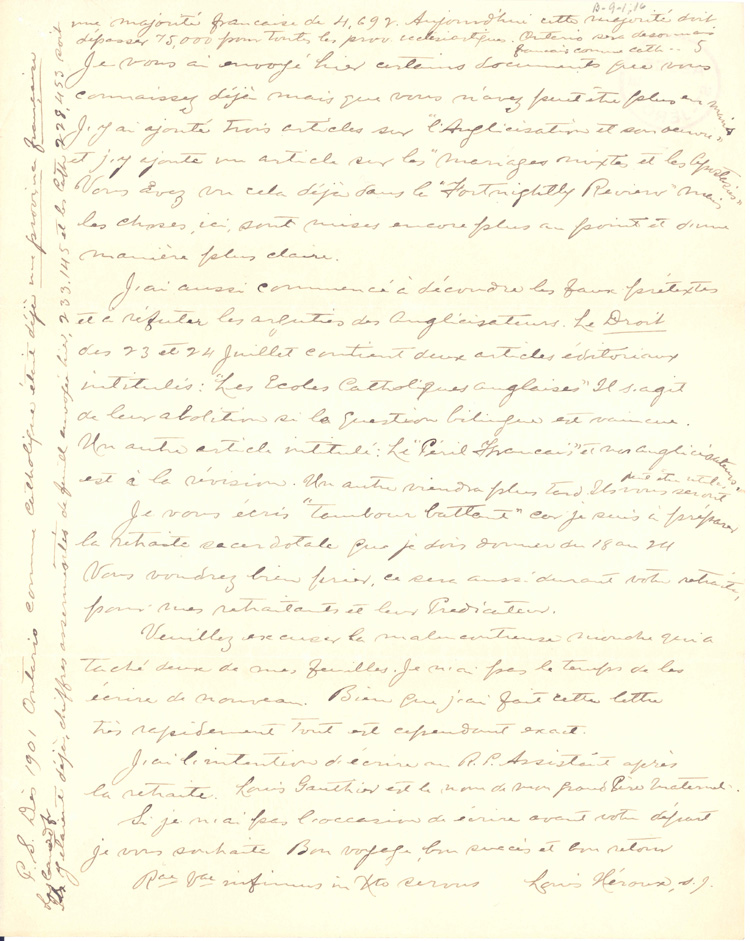 B-9-1,16
une majorité française de 4,692. Aujourd'hui cette majorité doit
dépasser 75,000 pour toutes les prov. ecclésiastiques. Ontario sera désormais
français comme cath..
5
Je vous ai envoyé hier certains documents que vous
connaissez déjà mais que vous n'avez peut être plus en mains
J'y ai ajouté trois articles sur "l'Anglicisation et son œuvre"
et j'y ajoute un article sur les "mariages mixtes et les Apostasies"
Vous avez vu cela déjà dans le "Fortnightly Review" mais
les choses, ici, sont mises encore plus au point et d'une
manière plus claire.
J'ai aussi commencé à découdre les faux prétextes
et à réfuter les arguties des Anglicisateurs. Le Droit
des 23 et 24 Juillet contient deux articles éditoriaux
intitulés: "Les Ecoles Catholiques anglaises" Il s'agit
de leur abolition si la question bilingue est vaincue.
Un autre article intitulé: Le "Péril Français" et nos anglicisateurs"
est à la révision. Un autre viendra plus tard. Ils vous seront
peut être utiles
Je vous écris "tambour battant" car je suis à préparer
la retraite sacerdotale que je dois donner du 18 au 24
Vous voudrez bien prier, ce sera aussi durant votre retraite,
pour mes retraitants et leur Prédicateur.
Veuillez excuser la malencontreuse mouche qui a
taché deux de mes feuilles. Je n'ai pas le temps de les
écrire de nouveau. Bien que j'ai fait cette lettre
très rapidement tout est cependant exact.
J'ai l'intention d'écrire au R.P. Assistant après
la retraite. Louis Gauthier est le nom de mon grand Père Maternel.
Si je n'ai pas l'occasion de écrire avant votre départ
je vous souhaite Bon voyage, bon succès et bon retour
Rae Vae infimus in Xto servus Louis Héroux, s.j.
P.S. Dès 1901 Ontario comme catholique était déjà une province française
Les Canad. f.
y étaient déjà, chiffres assermentés de fait envoyés hier, 233,145 et les cath 228,453 soit